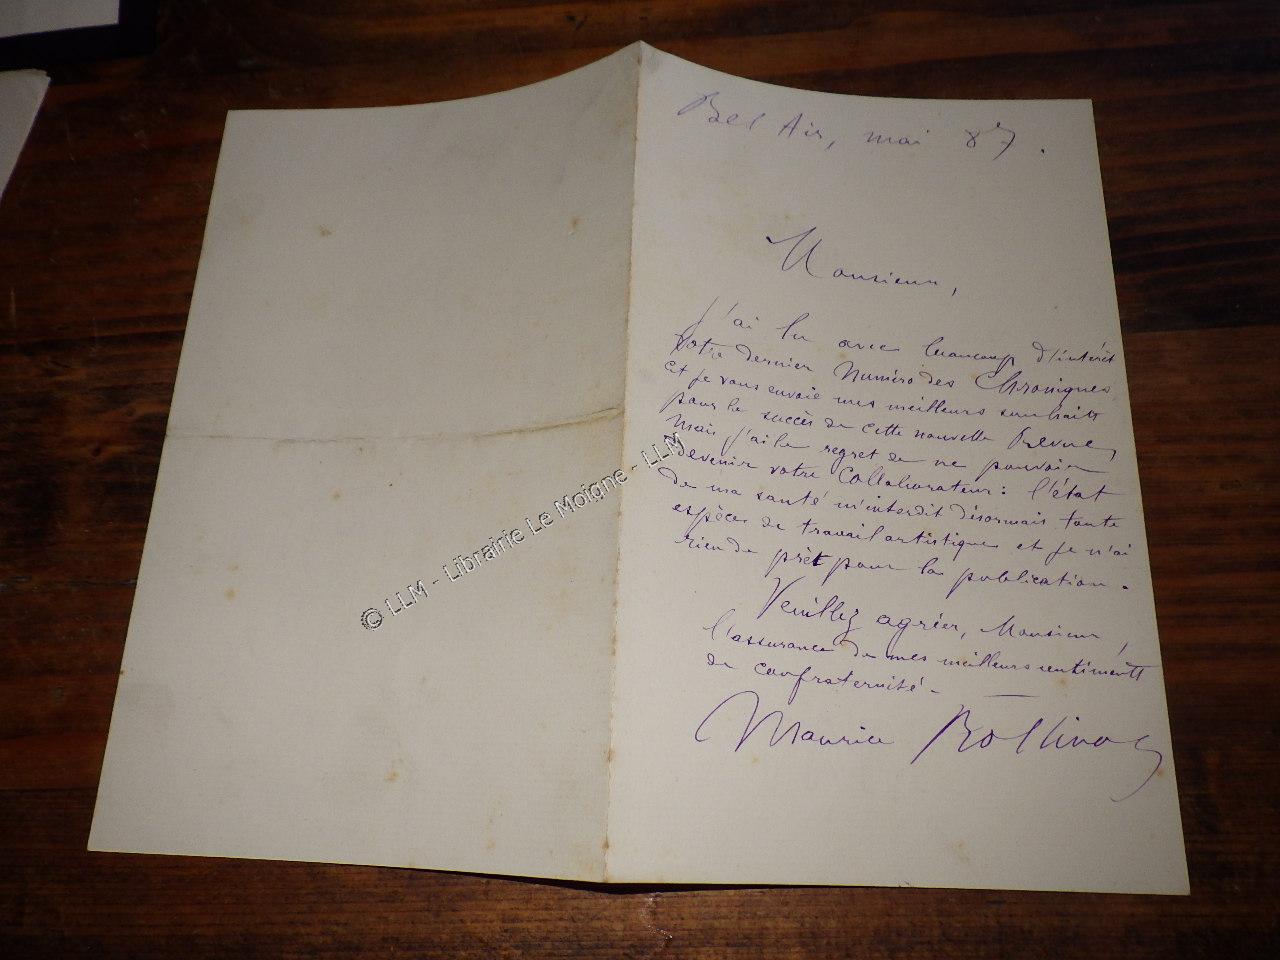 Bel Air, mai 87.
Monsieur,
J'ai lu avec beaucoup d'intérêt
votre dernier Numéro des Chroniques
et je vous envoie mes meilleurs souhaits
pour le succès de cette nouvelle Revue,
Mais j'ai le regret de ne pouvoir
devenir votre Collaborateur : l'état
de ma santé m'interdit désormais toute
espèce de travail artistique et je n'ai
rien de prêt pour la publication.
Veuillez agréer, Monsieur,
l'assurance de mes meilleurs sentiments
de confraternité.
Maurice Rollinat
© LLM - Librairie Le Moigne - LLM